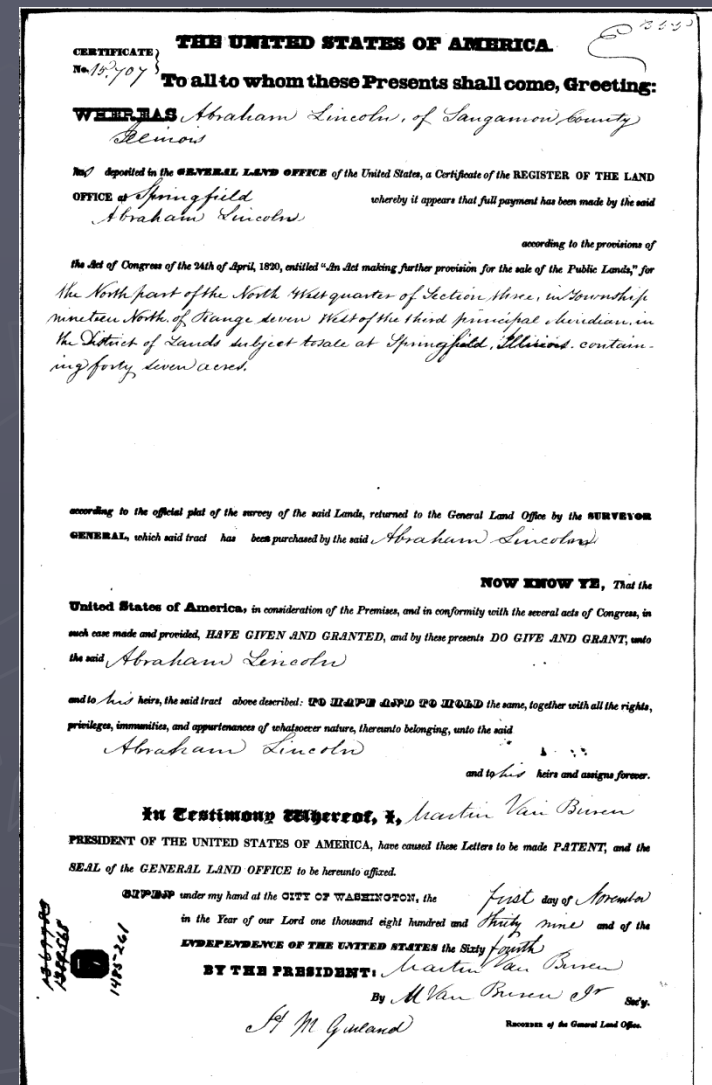 THE UNITED STATES OF AMERICA.
CERTIFICATE
No. 15707
To all to whom these Presents shall come, Greeting:
WHEREAS Abraham Lincoln, of Sangamon County
Illinois
has deposited in the GENERAL LAND OFFICE of the United States, a Certificate of the REGISTER OF THE LAND
OFFICE at Springfield whereby it appears that full payment has been made by the said
Abraham Lincoln
according to the provisions of
the Act of Congress of the 24th of April, 1820, entitled "An Act making further provision for the sale of the Public Lands," for
the North part of the North West quarter of Section three, in Township
nineteen North, of Range seven West of the third principal Meridian, in
the District of Lands subject to sale at Springfield, Illinois. contain-
ing forty seven acres.
according to the official plat of the survey of the said Lands, returned to the General Land Office by the SURVEYOR
GENERAL, which said tract has been purchased by the said Abraham Lincoln
NOW KNOW YE, That the
United States of America, in consideration of the Premises, and in conformity with the several acts of Congress, in
such case made and provided, HAVE GIVEN AND GRANTED, and by these presents DO GIVE AND GRANT, unto
the said Abraham Lincoln
and to his heirs, the said tract above described: TO HAVE AND TO HOLD the same, together with all the rights,
privileges, immunities, and appurtenances of whatsoever nature, thereunto belonging, unto the said
Abraham Lincoln
and to his heirs and assigns forever.
In Testimony Whereof, I, Martin Van Buren
PRESIDENT OF THE UNITED STATES OF AMERICA, have caused these Letters to be made PATENT, and the
SEAL of the GENERAL LAND OFFICE to be hereunto affixed.
GIVEN under my hand at the CITY OF WASHINGTON, the first day of November
in the Year of our Lord one thousand eight hundred and thirty nine and of the
INDEPENDENCE OF THE UNITED STATES the Sixty fourth
BY THE PRESIDENT: Martin Van Buren
By M Van Buren Jr Sec'y.
H M Garland
RECORDER of the General Land Office.
1485-261